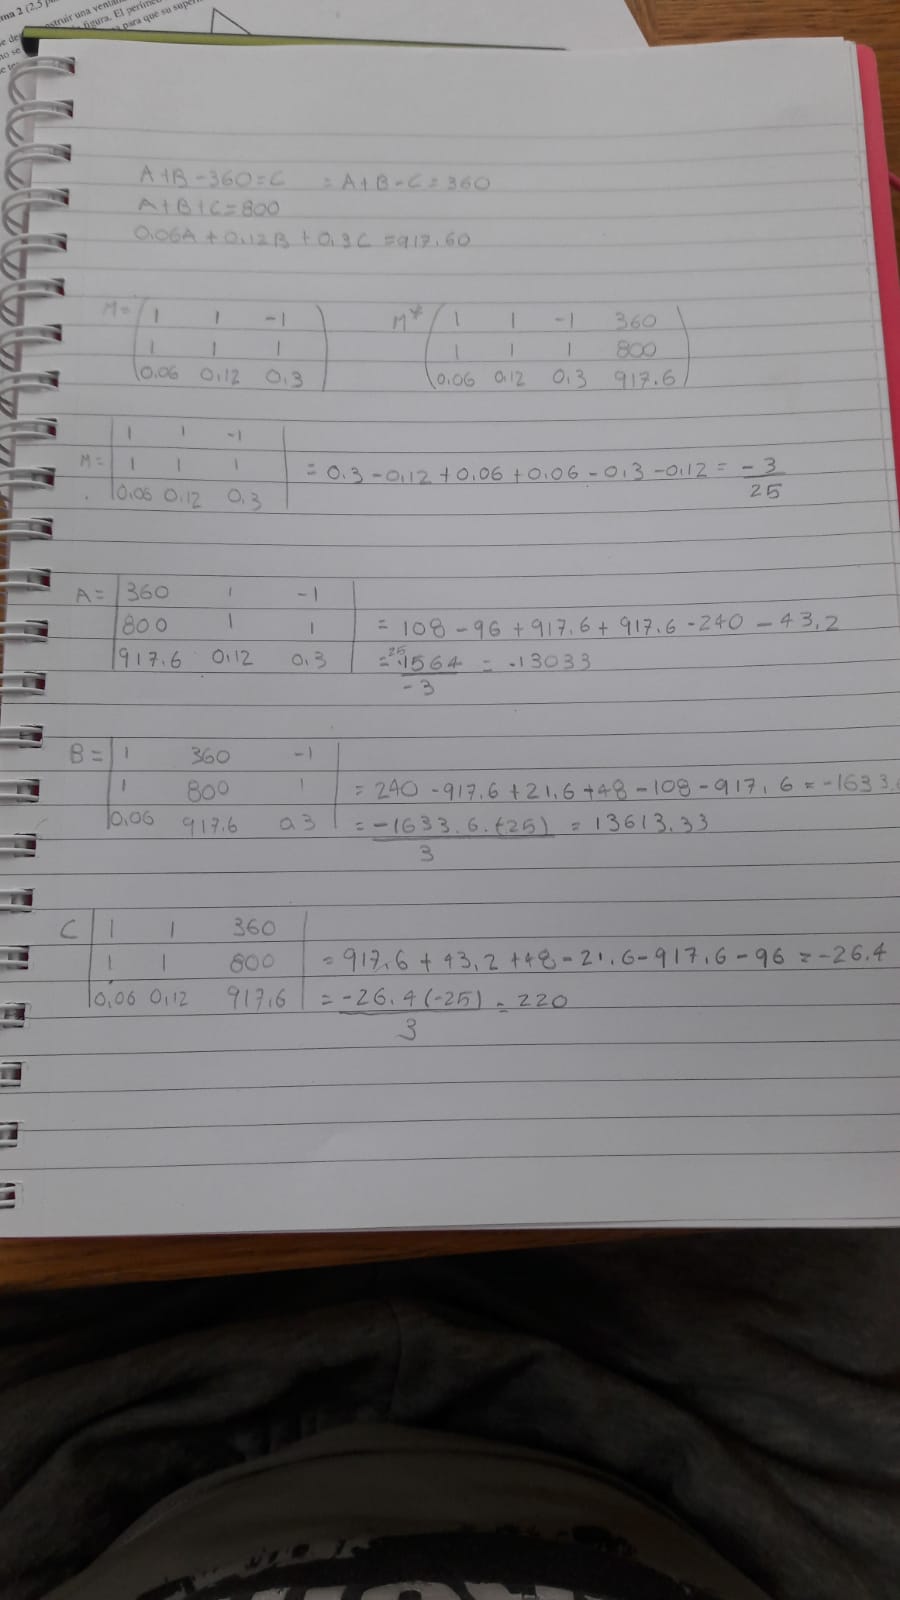 ma 2 (2,5
struir una venta
figura. El períme
para que su super
A+B-360=C = A+B-C=360
A+B+C=800
0.06A+0.12B+0.3C=917.60
M= 1 1 -1 M* 1 1 -1 360
1 1 1 1 1 1 800
0.06 0.12 0.3 0.06 0.12 0.3 917.6
1 1 -1
M= 1 1 1 = 0.3-0.12+0.06+0.06-0.3-0.12= -3
0.06 0.12 0.3 25
A= 360 1 -1
800 1 1 = 108-96+917.6+917.6-240-43,2
917.6 0.12 0.3 = 25.1564 = -13033
-3
B= 1 360 -1
1 800 1 = 240-917.6+21.6+48-108-917.6=-1633.
0.06 917.6 0.3 = -1633.6.(-25) = 13613.33
3
C 1 1 360
1 1 800 = 917.6+43.2+48-21.6-917.6-96=-26.4
0.06 0.12 917.6 = -26.4(-25) = 220
3